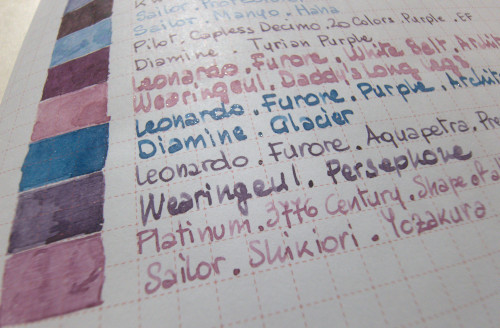 Sailor.
Sailor. Manyo. Hana
Pilot. Capless Decimo. 20 Colors. Purple. EF
Diamine. Tyrian Purple
Leonardo. Furore. White Belt.
Wearingeul. Daddy's Long Legs
Leonardo. Furore. Purple.
Diamine. Glacier
Leonardo. Furore. Aquapetra.
Wearingeul. Persephone
Platinum. 3776 Century. Shape of a
Sailor. Shikiori. Yozakura